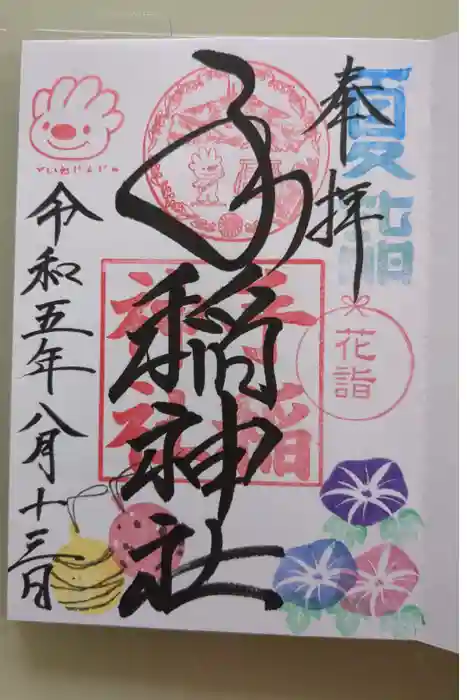 夏詣
奉拝
花詣
手稲神社
手稲
神社
ていねじんじゃ
令和五年八月十三日